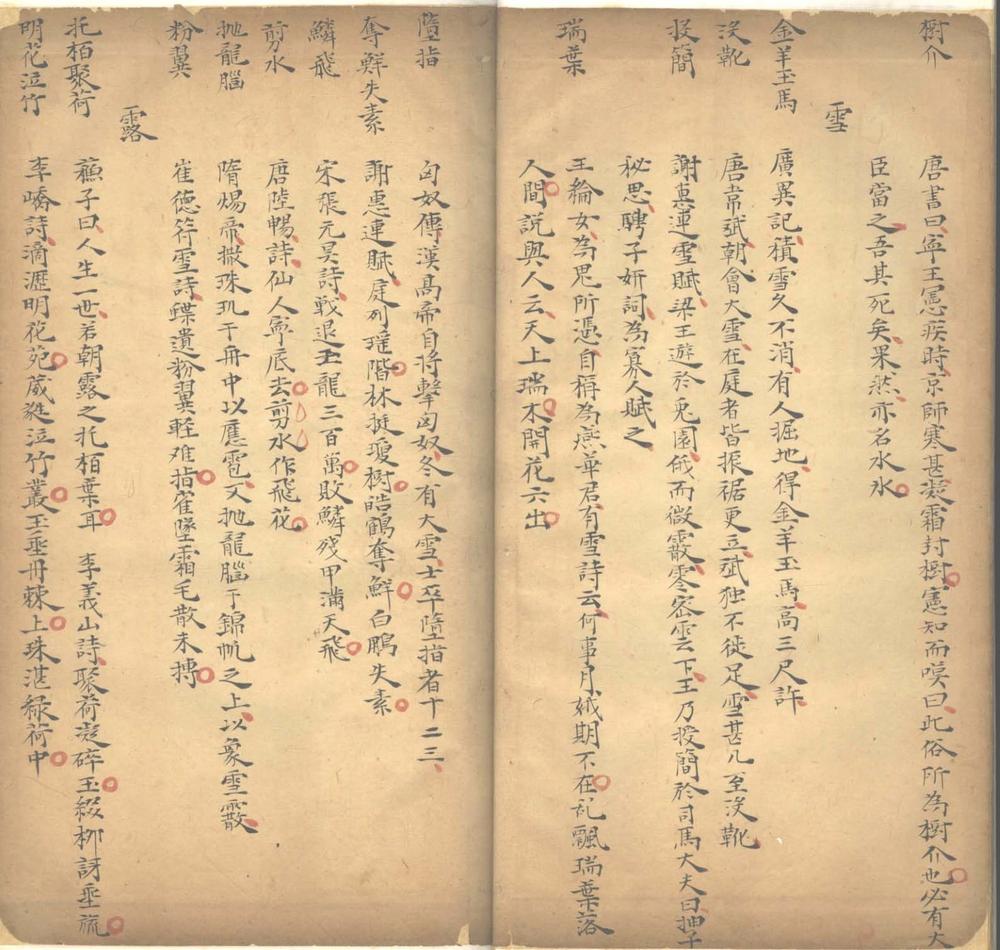 樹介
唐書曰寧王憲疾時京師寒甚凝霜封樹憲知而嘆曰此俗所為樹介也必有大
臣當之吾其死矣果然亦名水氷
雪
金羊玉馬
廣異記積雪久不消有人掘地得金羊玉馬高三尺許
沒靴
唐常斌朝會大雪在庭者皆振裾更立斌独不徙足雪甚几至沒靴
授簡
謝惠連雪賦梁王遊於兎園俄而微霰零密雲下王乃授簡於司馬大夫曰抽子
秘思騁子妍詞為寡人賦之
瑞葉
王綸女為鬼所憑自稱為燕華君有雪詩云何事月娥期不在乱飄瑞葉落
人間説與人云天上瑞木開花六出
墮指
匈奴傳漢髙帝自將擊匈奴冬有大雪士卒墮指者十二三
奪鮮失素
謝惠連賦庭列瑶階林挺瓊樹皓鶴奪鮮白鷴失素
鱗飛
宋張元昊詩戰退玉龍三百萬敗鱗殘甲滿天飛
剪水
唐陸暢詩仙人寧底去剪水作飛花
抛龍腦
隋煬帝撒珠玑于舟中以應雹又抛龍腦于錦帆之上以象雪霰
粉翼
崔德符雪詩蝶遺粉翼軽难指隺墜霜毛散未摶
露
托栢聚荷
蘓子曰人生一世若朝露之托栢葉耳 李義山詩聚荷凝碎玉綴栁訝垂旒
明花泣竹
李嶠詩滴瀝明花苑葳蕤泣竹叢玉垂丹棘上珠湛緑荷中